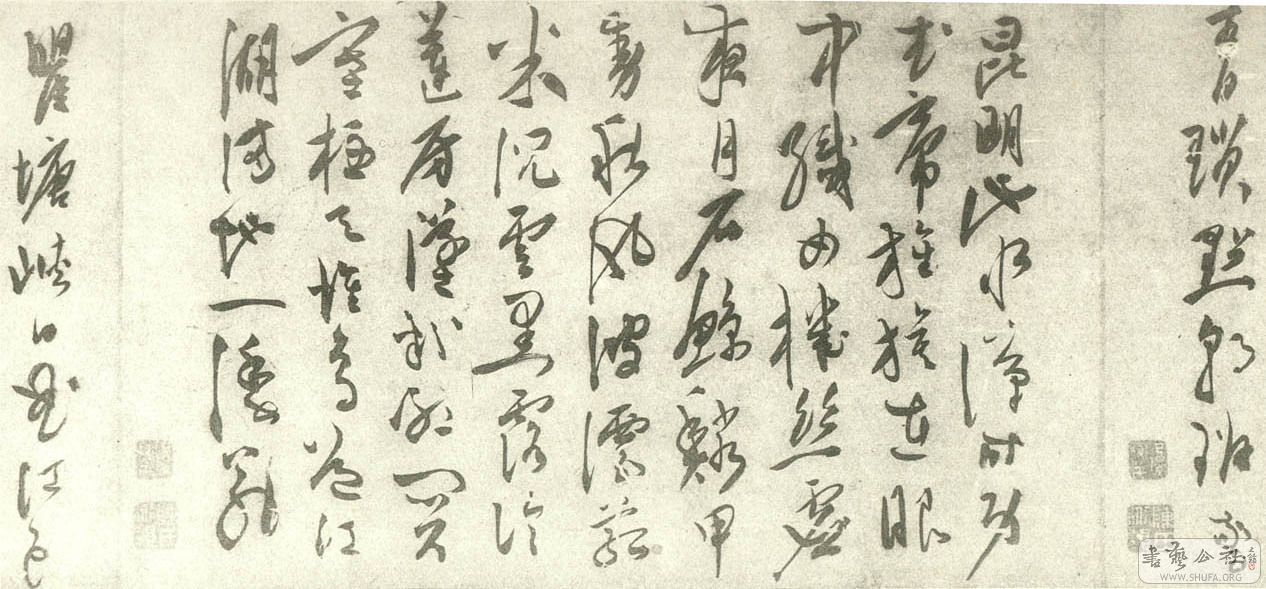 青瑣點朝班
昆明池水漢時功
武帝旌旗在眼
中織女機絲虛
夜月石鯨鱗甲
動秋風波漂菰
米沉雲黑露冷
蓮房墜粉紅關
塞極天惟鳥道江
湖滿地一漁翁
瞿塘峽口曲江頭
書藝公社
WWW.SHUFA.ORG